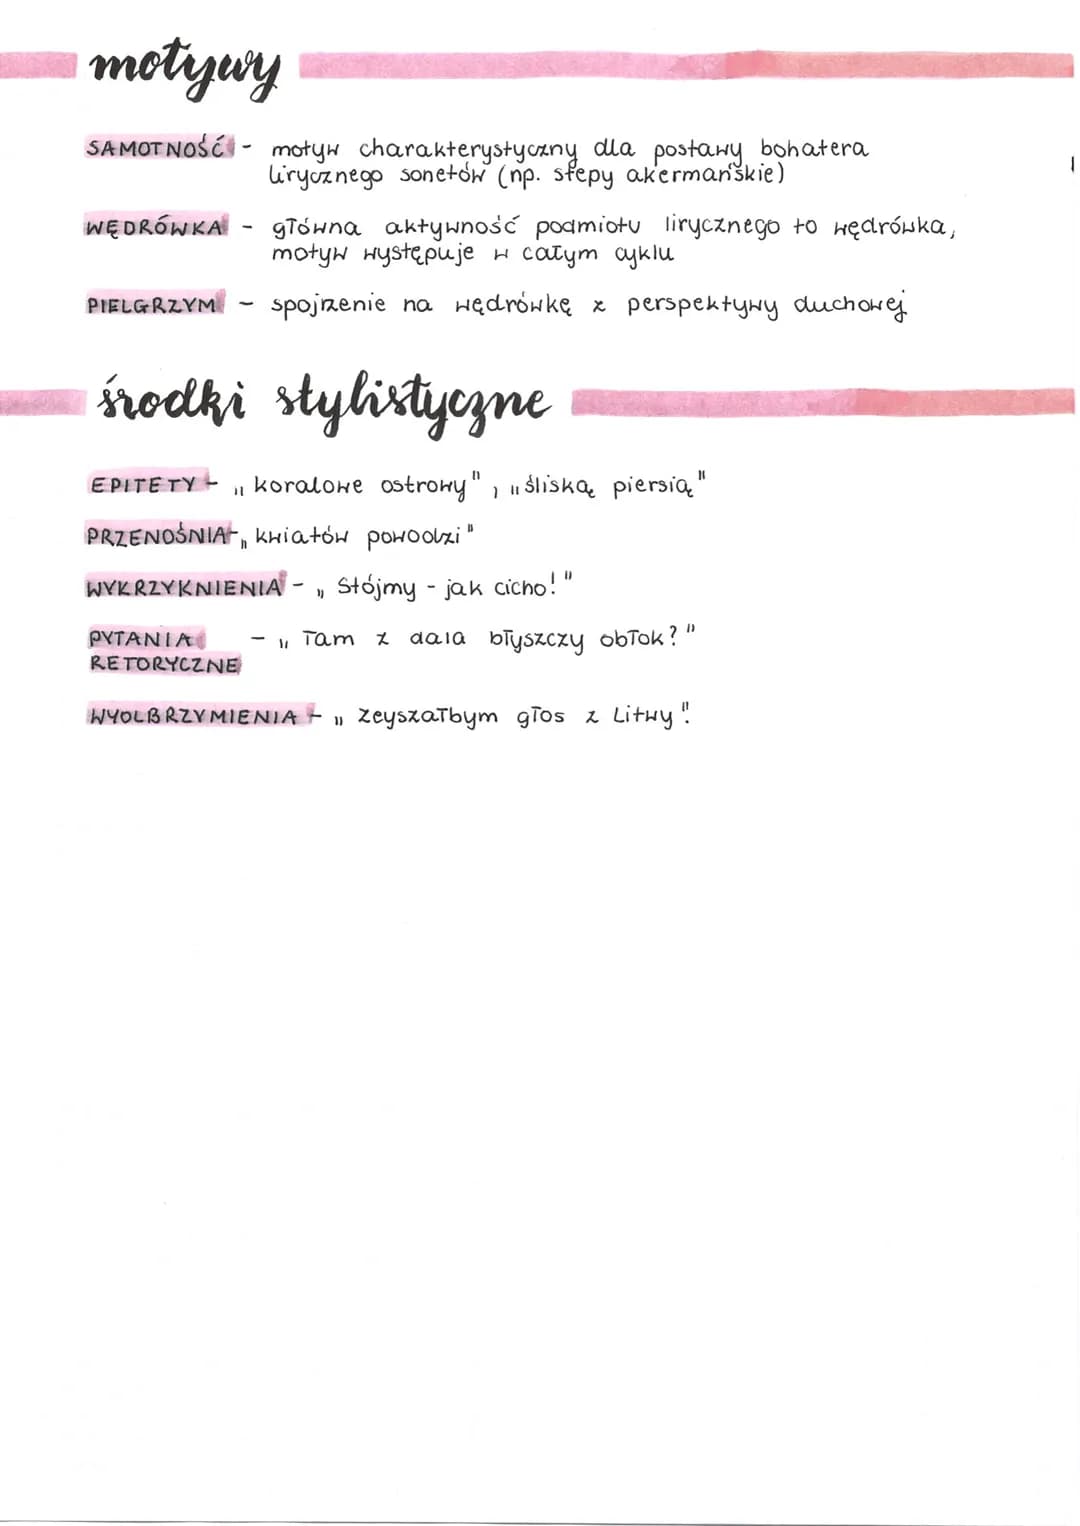 motywy
SAMOTNOŚĆ - motyw charakterystyczny dla postawy bohatera
lirycznego sonetów (np. stepy akermańskie)
WĘDRÓWKA - główna aktywność podmiotu lirycznego to wędrówka,
motyw występuje w całym cyklu
PIELGRZYM - spojrzenie na wędrówkę z perspektywy duchowej
środki stylistyczne
EPITETY - „koralowe ostrowy", „śliską piersią"
PRZENOŚNIA - „kwiatów powodzi"
WYKRZYKNIENIA - „Stójmy - jak cicho!"
PYTANIA - „Tam z dala błyszczy obłok?"
RETORYCZNE
WYOLBRZYMIENIA - „Zeyszałbym głos z Litwy".